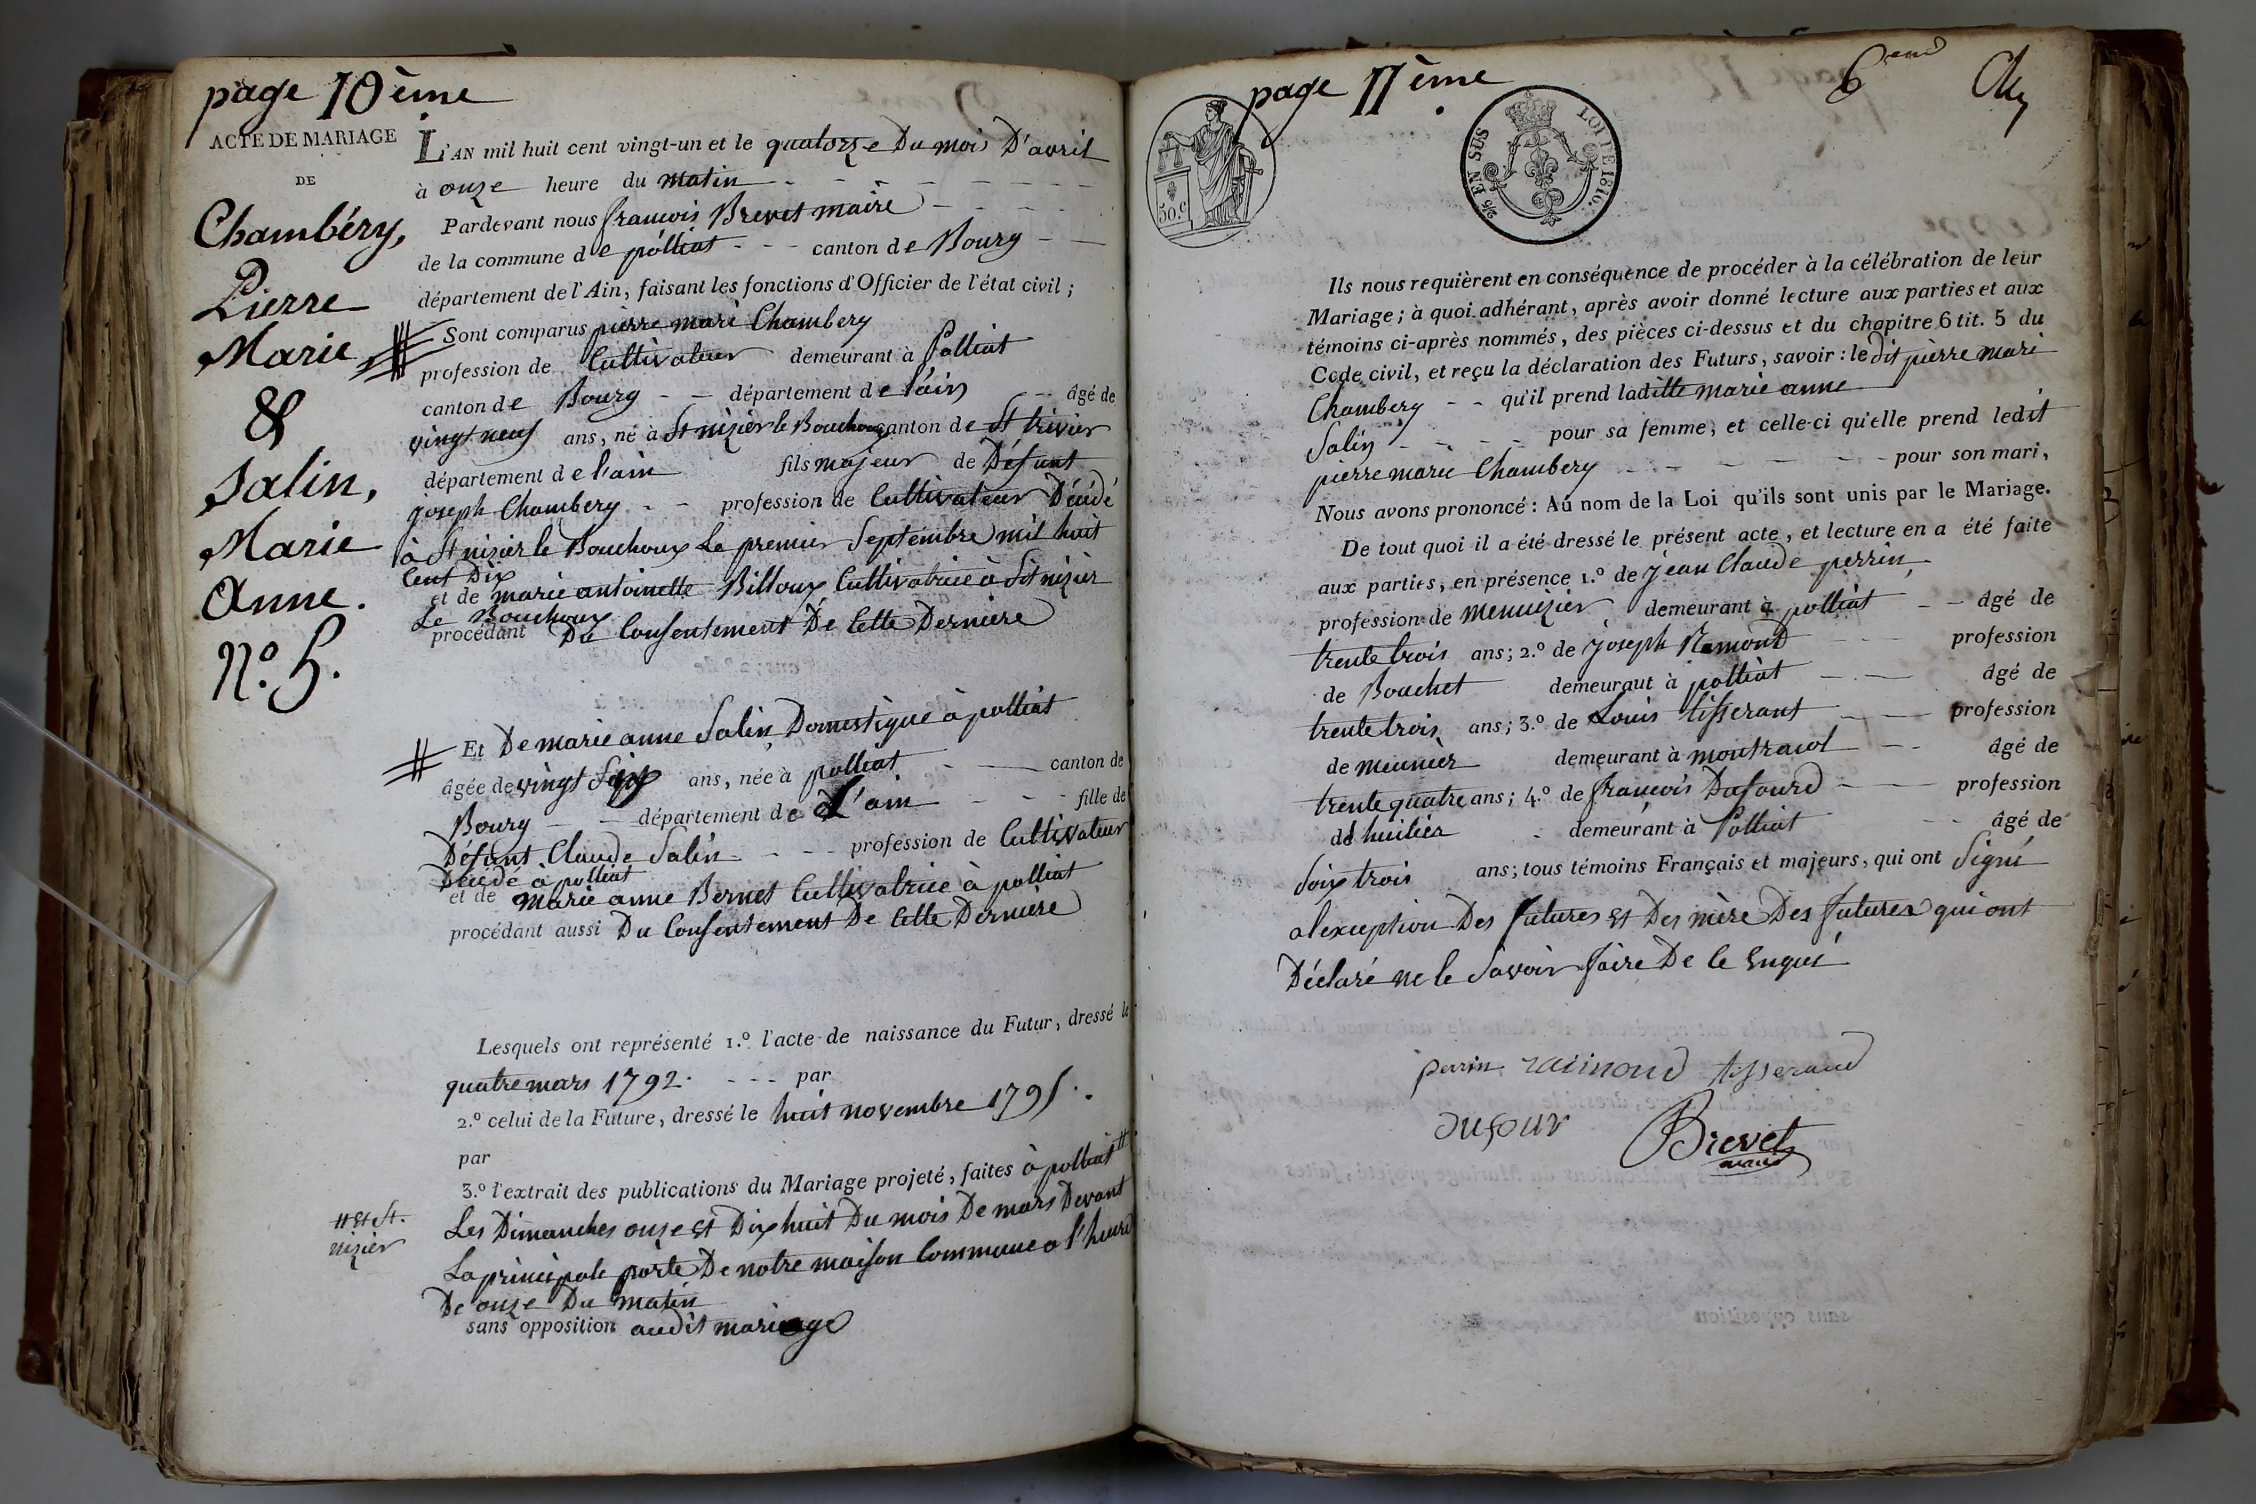 page 10ème
ACTE DE MARIAGE
DE
Chambéry,
Pierre
Marie
&
Salin,
Marie
Anne.
N.° 5.
L'AN mil huit cent vingt-un et le quatorze Du mois D'avril
à onze heure du matin
Pardevant nous francois Brevet maire
de la commune de polliat canton de Bourg
département de l'Ain, faisant les fonctions d'Officier de l'état civil ;
Sont comparus pierre marie Chambery
profession de Cultivateur demeurant à Polliat
canton de Bourg département de l'ain âgé de
vingt neuf ans, né à St nizier le Bouchoux canton de St trivier
département de l'ain fils majeur de Défunt
joseph Chambery profession de Cultivateur Décédé
à St nizier le Bouchoux Le premier Septembre mil huit
Cent Dix
et de marie antoinette Billoux Cultivatrice à St nizier
Le Bouchoux
procédant Du Consentement De Cette Derniere
Et De marie anne Salin Domestique à polliat
âgée de vingt ans, née à polliat canton de
Bourg département de L'ain fille de
Défunt Claude Salin profession de Cultivateur
Décédé à polliat
et de marie anne Bernet Cultivatrice à polliat
procédant aussi Du Consentement De Cette Derniere
Lesquels ont représenté 1.° l'acte de naissance du Futur, dressé le
quatre mars 1792. par
2.° celui de la Future, dressé le huit novembre 1795.
par
3.° l'extrait des publications du Mariage projeté, faites à polliat #
# et St.
nizier
Les Dimanches onze et Dix huit Du mois De mars Devant
La principale porte De notre maison Commune a l'heure
De onze Du matin
sans opposition audit mariage
page 11ème
50.c
EN SUS
LOI DE 1816.
Ils nous requièrent en conséquence de procéder à la célébration de leur
Mariage ; à quoi adhérant, après avoir donné lecture aux parties et aux
témoins ci-après nommés, des pièces ci-dessus et du chapitre 6 tit. 5 du
Code civil, et reçu la déclaration des Futurs, savoir : le dit pierre marie
Chambery qu'il prend laditte marie anne
Salin pour sa femme, et celle-ci qu'elle prend ledit
pierre marie Chambery pour son mari,
Nous avons prononcé : Au nom de la Loi qu'ils sont unis par le Mariage.
De tout quoi il a été dressé le présent acte, et lecture en a été faite
aux parties, en présence 1.° de jean Claude perrin
profession de menuizier demeurant à polliat âgé de
trente trois ans ; 2.° de joseph Remond profession
de Bouchet demeurant à polliat âgé de
trente trois ans ; 3.° de Louis tisserant profession
de meunier demeurant à montracol âgé de
trente quatre ans ; 4.° de francois Dufourd profession
de huilier demeurant à Polliat âgé de
Soix trois ans ; tous témoins Français et majeurs, qui ont Signé
a l'exception Des futures et Des mère Des futures qui ont
Déclaré ne le Savoir faire De ce Enquis
perrin raimond tisserand
dufour Brevet
maire